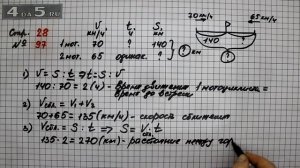 4 да 5.ru
Стр. 28
№ 97
V км/ч t, ч S, км
20 км/ч 65 км/ч
1 мот. 70 ? 140
2 мот. 65 одинак. ?
140 ?
? км
1) V = S : t ⇒ t = S : V
140 : 70 = 2 (ч) - время движения 1 мотоциклиста =
время до встречи
2) Vсбл. = V1 + V2
70 + 65 = 135 (км/ч) - скорость сближения
3) Vсбл. = S : t ⇒ S = Vсбл. · t
135 · 2 = 270 (км) - расстояние между гор